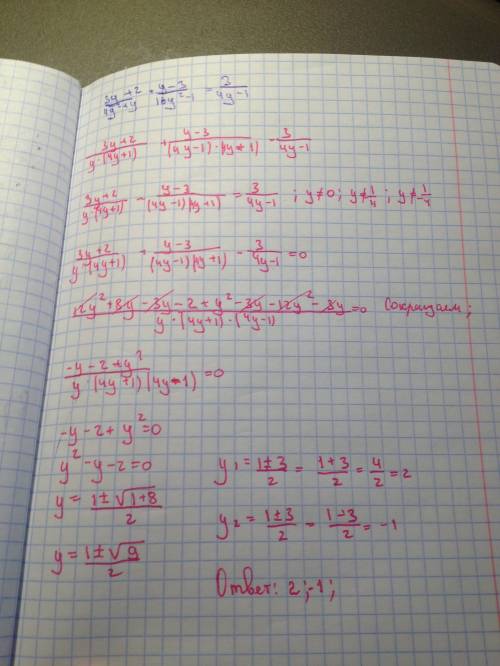 (3y+2)/(4y²+y) + (y-3)/(16y²-1) = 3/(4y-1)
(3y+2)/(y·(4y+1)) + (y-3)/((4y-1)·(4y+1)) - 3/(4y-1)
(3y+2)/(y·(4y+1)) - (y-3)/((4y-1)(4y+1)) = 3/(4y-1) ; y≠0; y≠1/4; y≠1/-4
(3y+2)/(y·(4y+1)) + (y-3)/((4y-1)(4y+1)) - 3/(4y-1) = 0
(12y²+8y-3y-2+y²-3y-12y²-3y)/(y·(4y+1)·(4y-1)) = 0 Сокращаем;
(-y-2+y²)/(y·(4y+1)(4y-1)) = 0
-y-2+y²=0
y²-y-2=0
y = (1±√(1+8))/2
y = (1±√9)/2
y₁ = (1±3)/2 = (1+3)/2 = 4/2 = 2
y₂ = (1±3)/2 = (1-3)/2 = -1
Ответ: 2;-1;